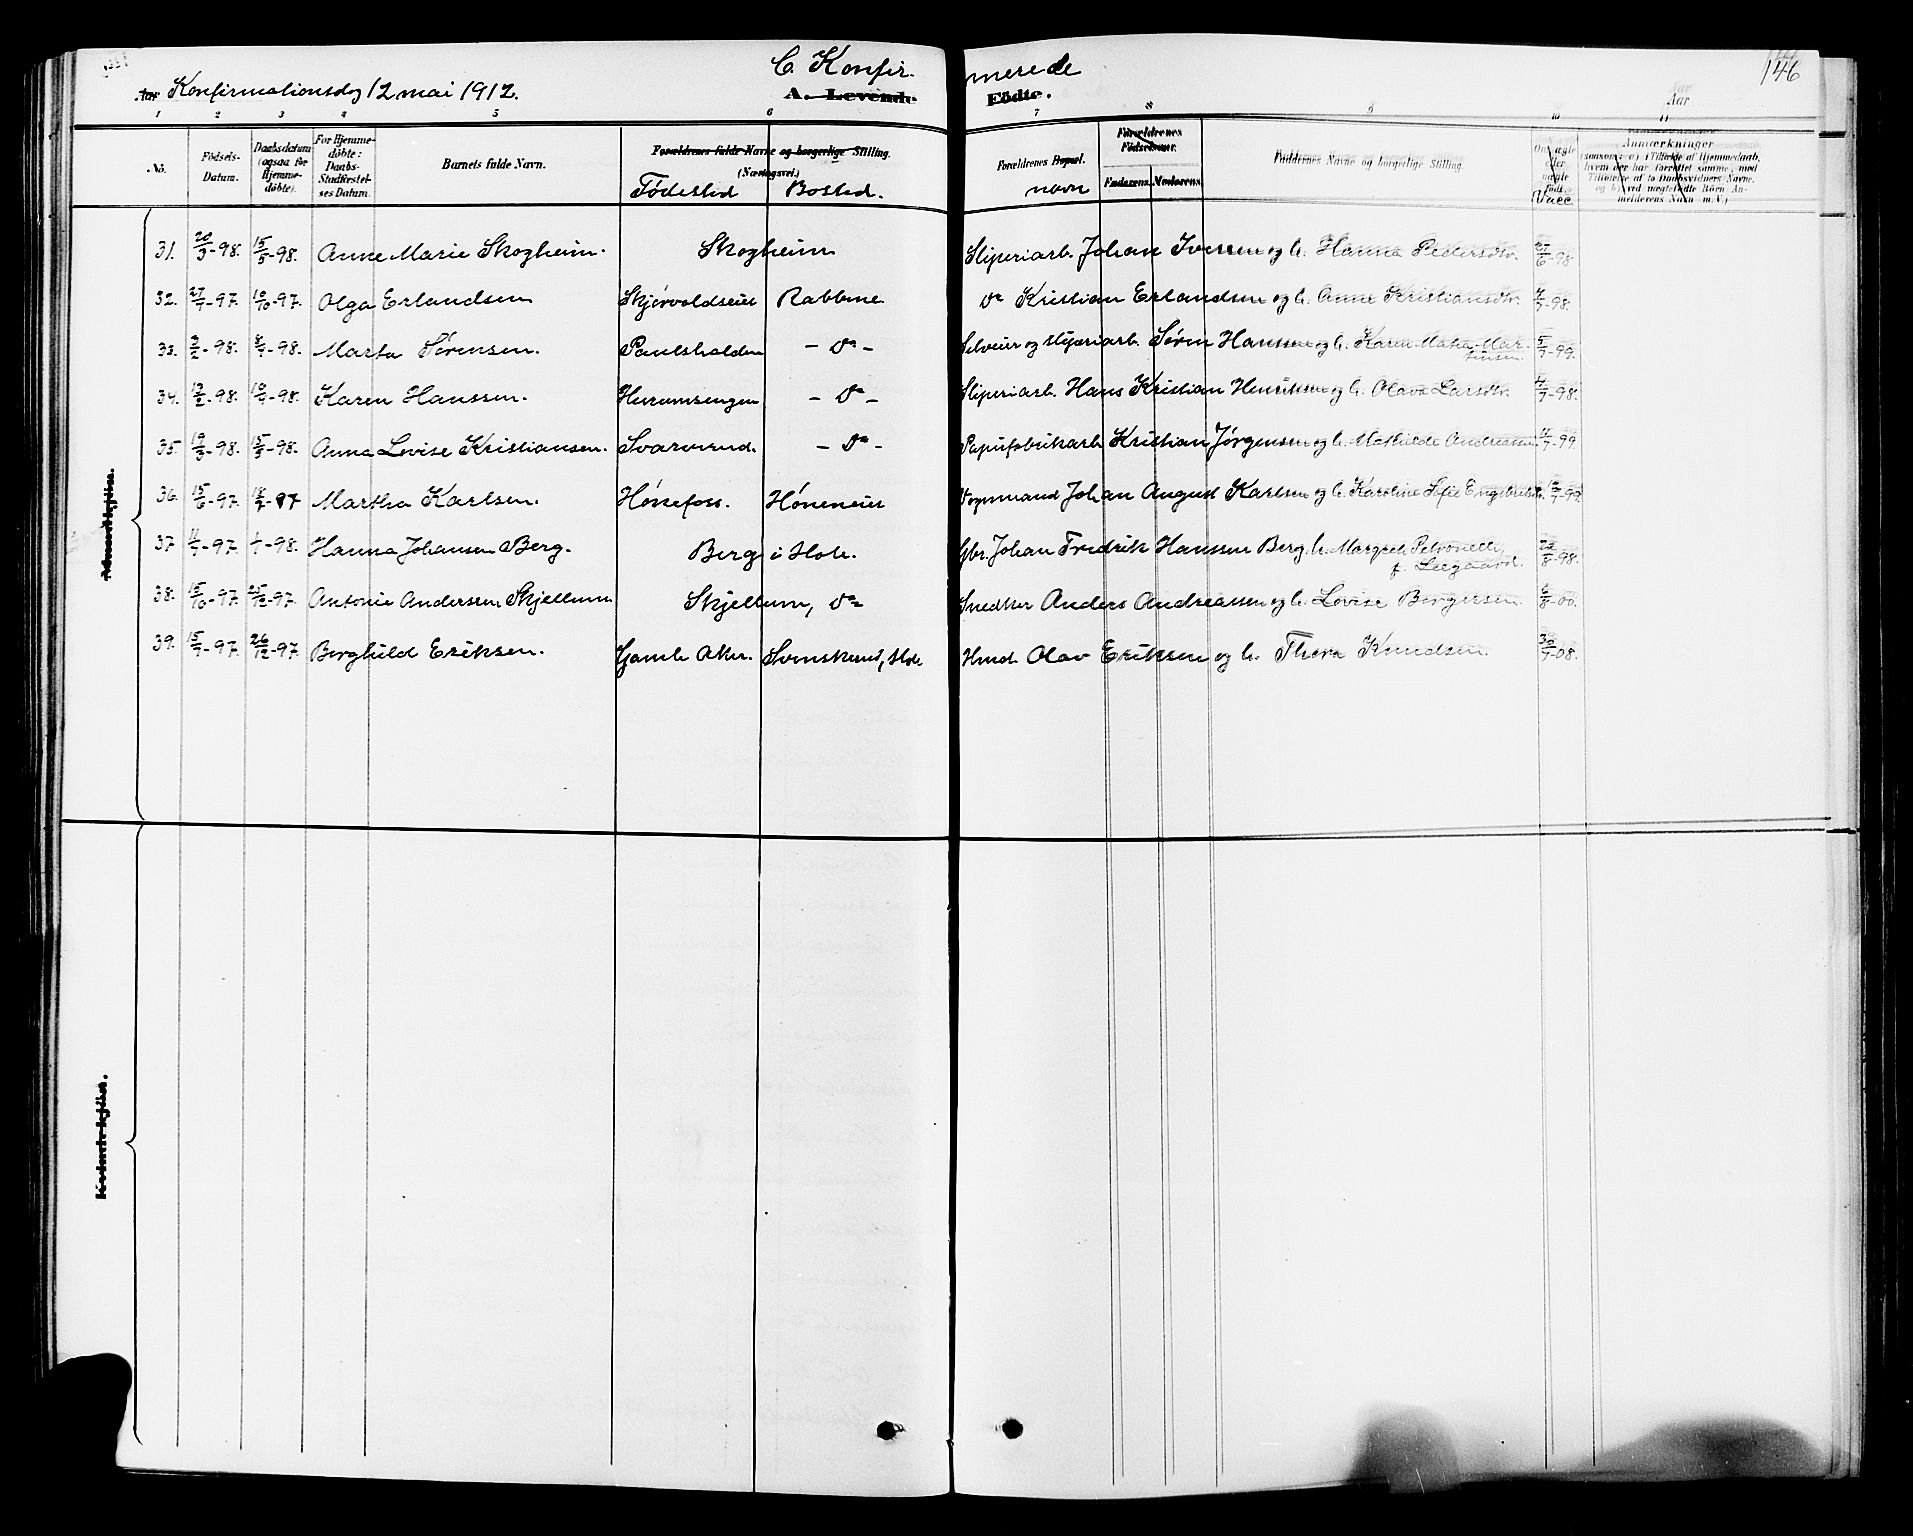 C. Konfirmerede
146
Aar Konfirmationsdag 12 mai 1912.
A. Levende Födte.
Aar
1 2 3 4 5 6 7 8 9 10 11
No.
Födsels-Datum.
Daabsdatum (ogsaa for Hjemme-döbte).
For Hjemme-döbte: Daabs-Stadfæstel-ses Datum.
Barnets fulde Navn.
Forældrenes fulde Navne og borgerlige Stilling. (Næringsvei.)
Fødested Bosted.
Forældrenes Bopæl.
navn
Forældrenes Födselsaar.
Faderens. Moderens.
Faddernes Navne og borgerlige Stilling.
Om ægte eller uægte födt.
Vacc
Anmærkninger (saasom: a) i Tilfælde af Hjemmedaab, hvem der har forrettet samme, med Tilföielse af to Daabsvidners Navne, og b) ved uægtefødte Börn An-melderens Navn m. V.)
31. 20/3-98. 15/5-98. Anne Marie Skogheim. Skogheim Sliperiarb. Johan Iversen og h. Hanna Pedersdtr. /6-98
32. 27/7-97. 10/10-97. Olga Erlandsen Skjørvoldseiet Rabbene do Kristian Erlandsen og h. Anne Kristiansdtr. /7-98.
33. 3/2-98. 8/4-98. Marta Sørensen. Paulshalden - do - Selveier og sliperiarb. Søren Hanssen og h. Karen Matea Mar-
tinsen. 5/7-99.
34. 13/2-98. 10/4-98. Karen Hanssen. Hurumsengen - do - Sliperiarb. Hans Kristian Henriksen og h. Olava Larsdtr. /7-98.
35. 19/3-98. 15/5-98. Anna Lovise Kristiansen. Svarverud. - do - Papirfabrikarb. Kristian Jørgensen og h. Mathilde Andreassen /7-99.
36. 15/6-97. 18/7-97 Martha Karlsen. Hønefoss. Høneneiet Vognmand Johan August Karlsen og h. Karoline Sofie Engebretsdtr. /7-99.
37. 11/7-97. 1/1-98. Hanna Johansen Berg. Berg i Hole. Gbr. Johan Fredrik Hanssen Berg. h. Margret Petronelle
f. Leegaard. 23/8-98.
38. 15/10-97. 25/12-97. Antonie Andersen Skjellum Skjellum, do Snedker Anders Andreassen og h. Lovise Borgersen. 6/8-00.
39. 15/7-97. 26/12-97. Borghild Eriksen. Gamle Aker. Svenskerud, Hole Hmd. Olav Eriksen og h. Thora Knudsen. 30/7-08.
Mandkjön.
Kvindekjön.